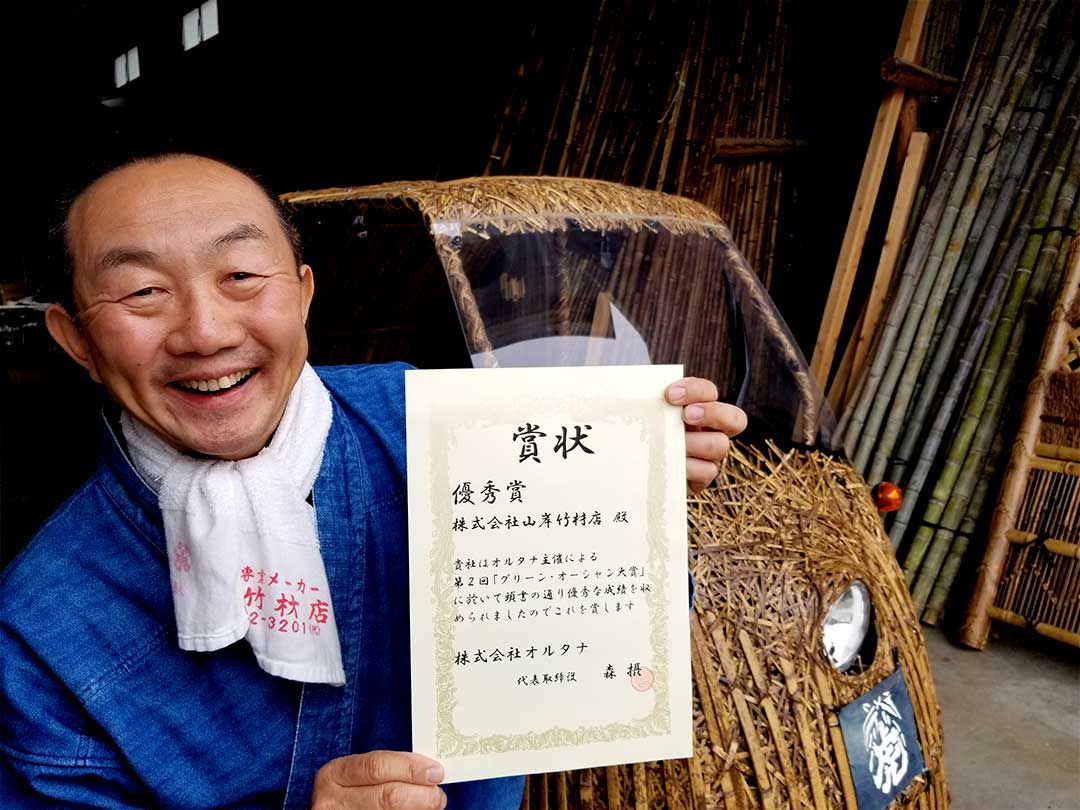 賞状
優秀賞
株式会社山岸竹材店 殿
貴社はオルタナ主催による
第2回「グリーン・オーシャン大賞」
に於いて頭書の通り優秀な成績を収
められましたのでこれを賞します
株式会社オルタナ
代表取締役 森 摂
専業メーカー
竹材店
2-3201㈹
虎